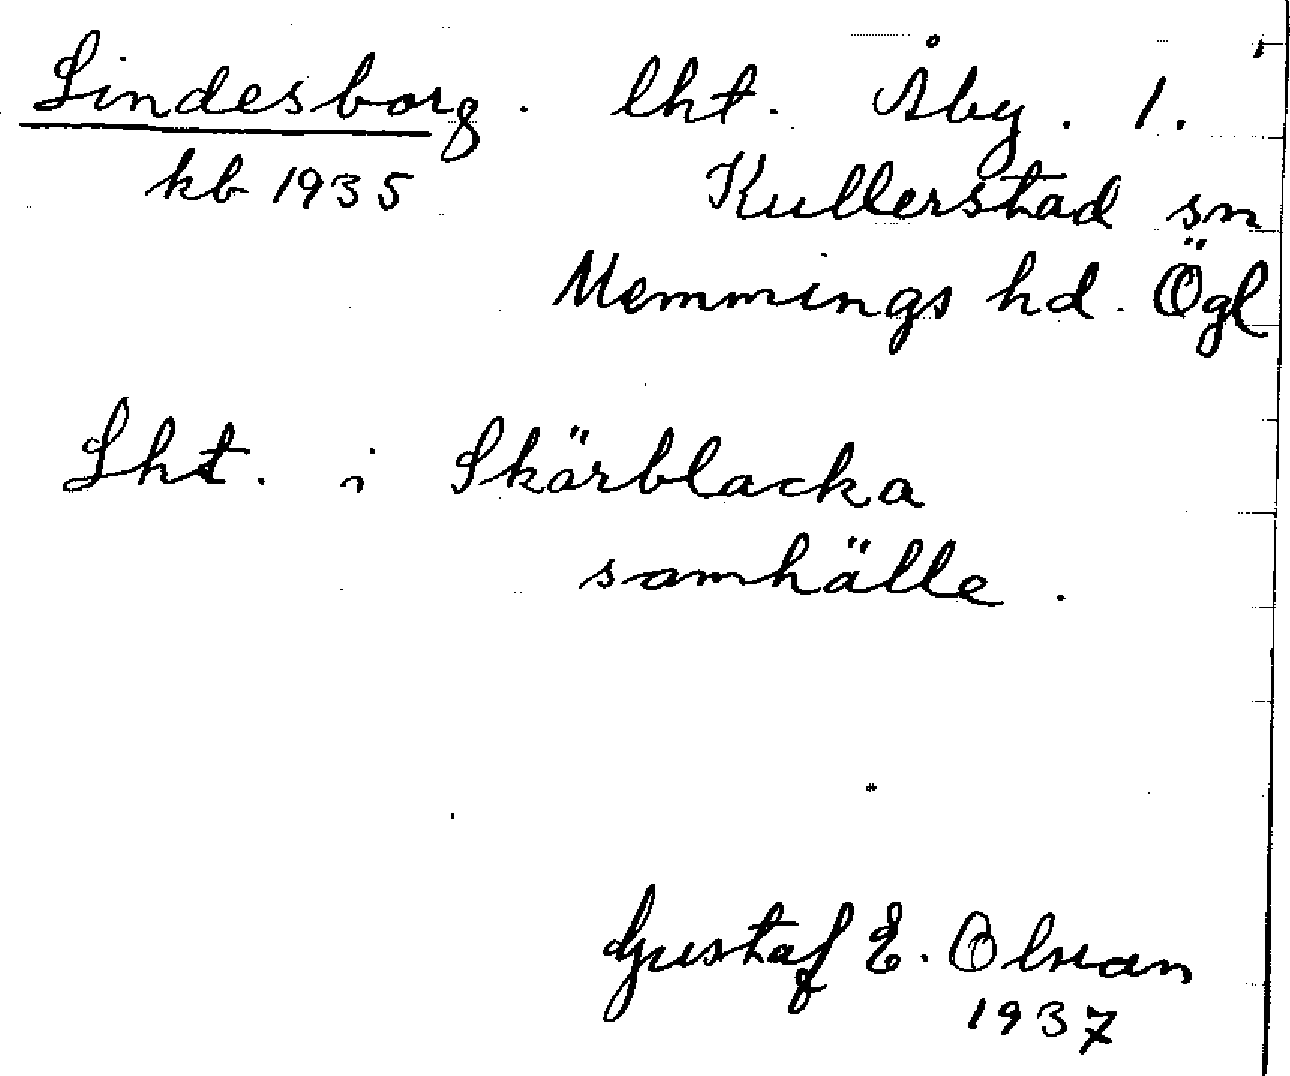 Lindesborg. lht. Åby. 1.
kb 1935 Kullerstad sn
Memmings hd. Ögl
Lht. i Skärblacka
samhälle.
Gustaf E. Olsson
1937